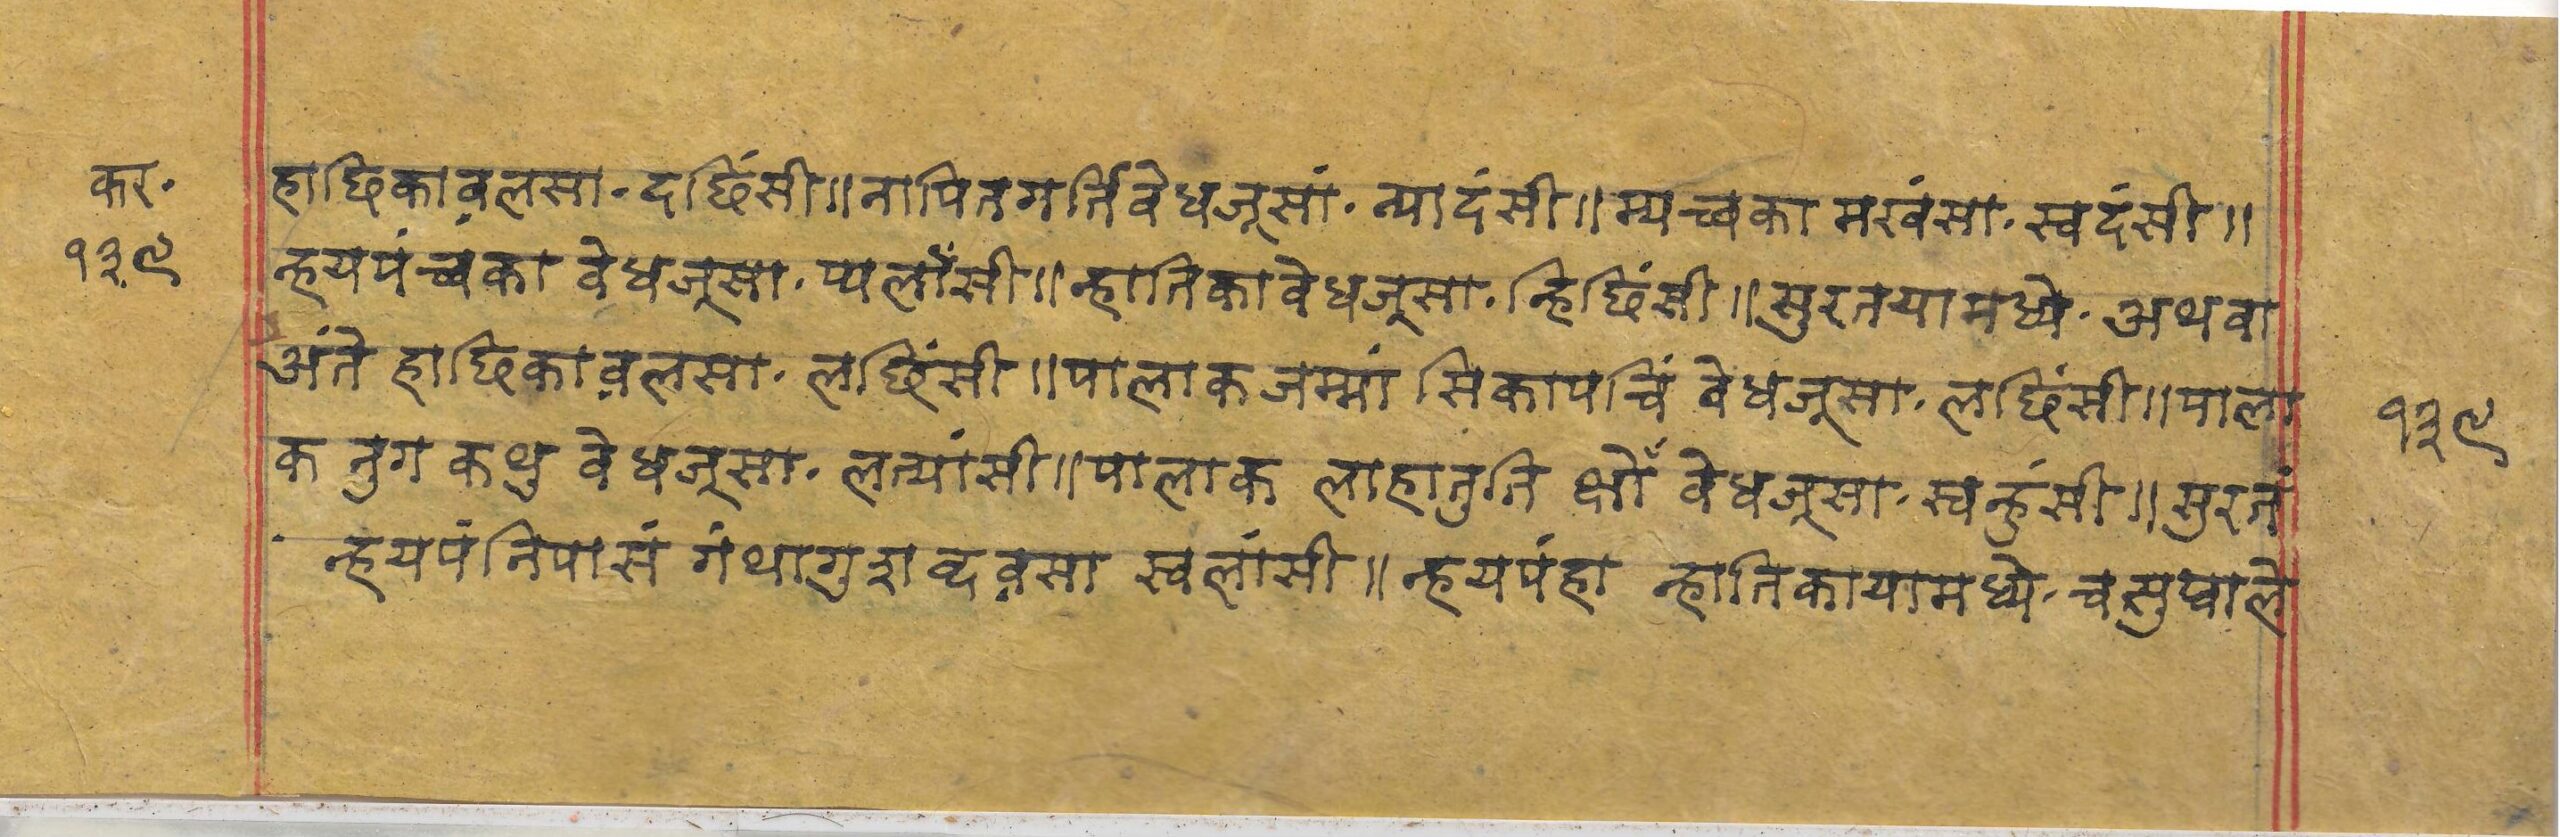 कर.
१३९
हाछिकाव़लसा. दछिंसी॥ नापितगर्तिवेधजूसां. न्यादंसी॥ म्यच्वका मखंसा. स्वदंसी॥
न्हयपंच्वंका वेधजूसा. प्यलाँसी॥ न्हातिकावेधजूसा. न्हिछिंसी॥ सुरतयामध्ये. अथवा
अंते हाछिकाव़लसा. लछिंसी॥ पालाकजम्मां सिकापचिं वेधजूसा. लछिंसी॥ पाला
क तुगकथु वेधजूसा. लत्यांसी॥ पालाक लाहातुति क्षोँ वेधजूसा. स्वन्हुंसी॥ सुरतं
न्हयपंनिपासं गंथागुशब्दव़सा स्वलांसी॥ न्हयपंहा न्हातिकायामध्ये. चसुप्वाले
१३९